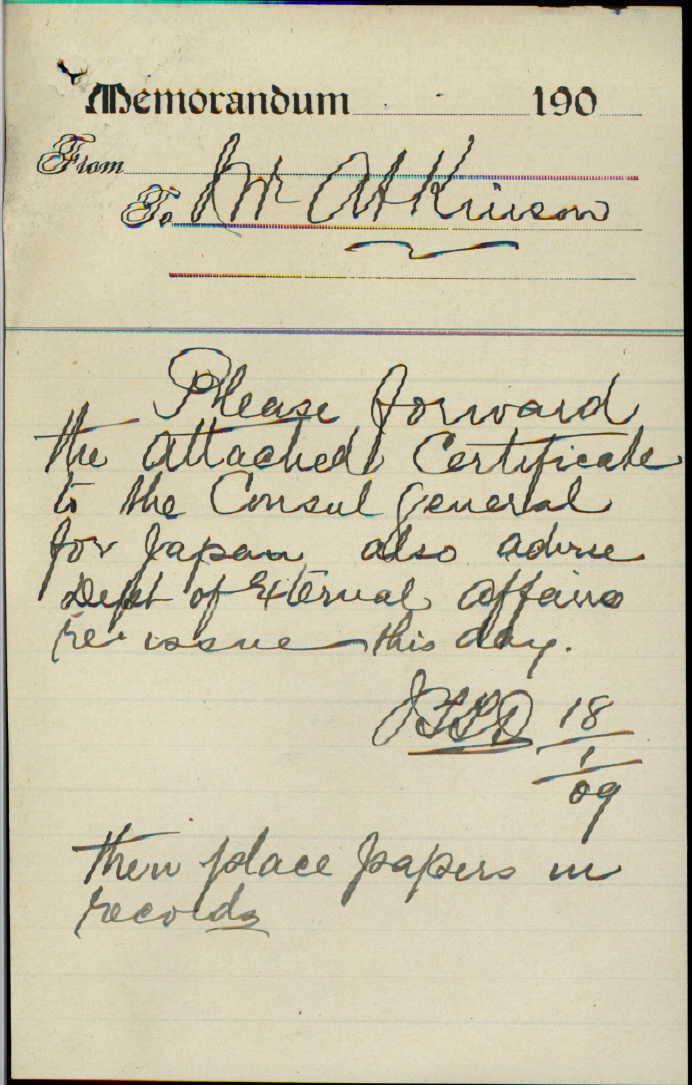 Memorandum 190
From
To Mr Atkinson
Please forward
the attached Certificate
to the Consul General
for Japan also advise
Dept of External Affairs
re issue this day.
18
1
09
then place papers in
records